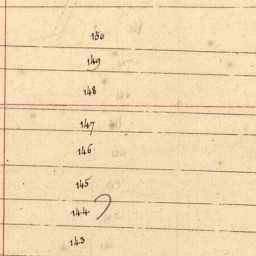 150
149
148
147
146
145
144
143